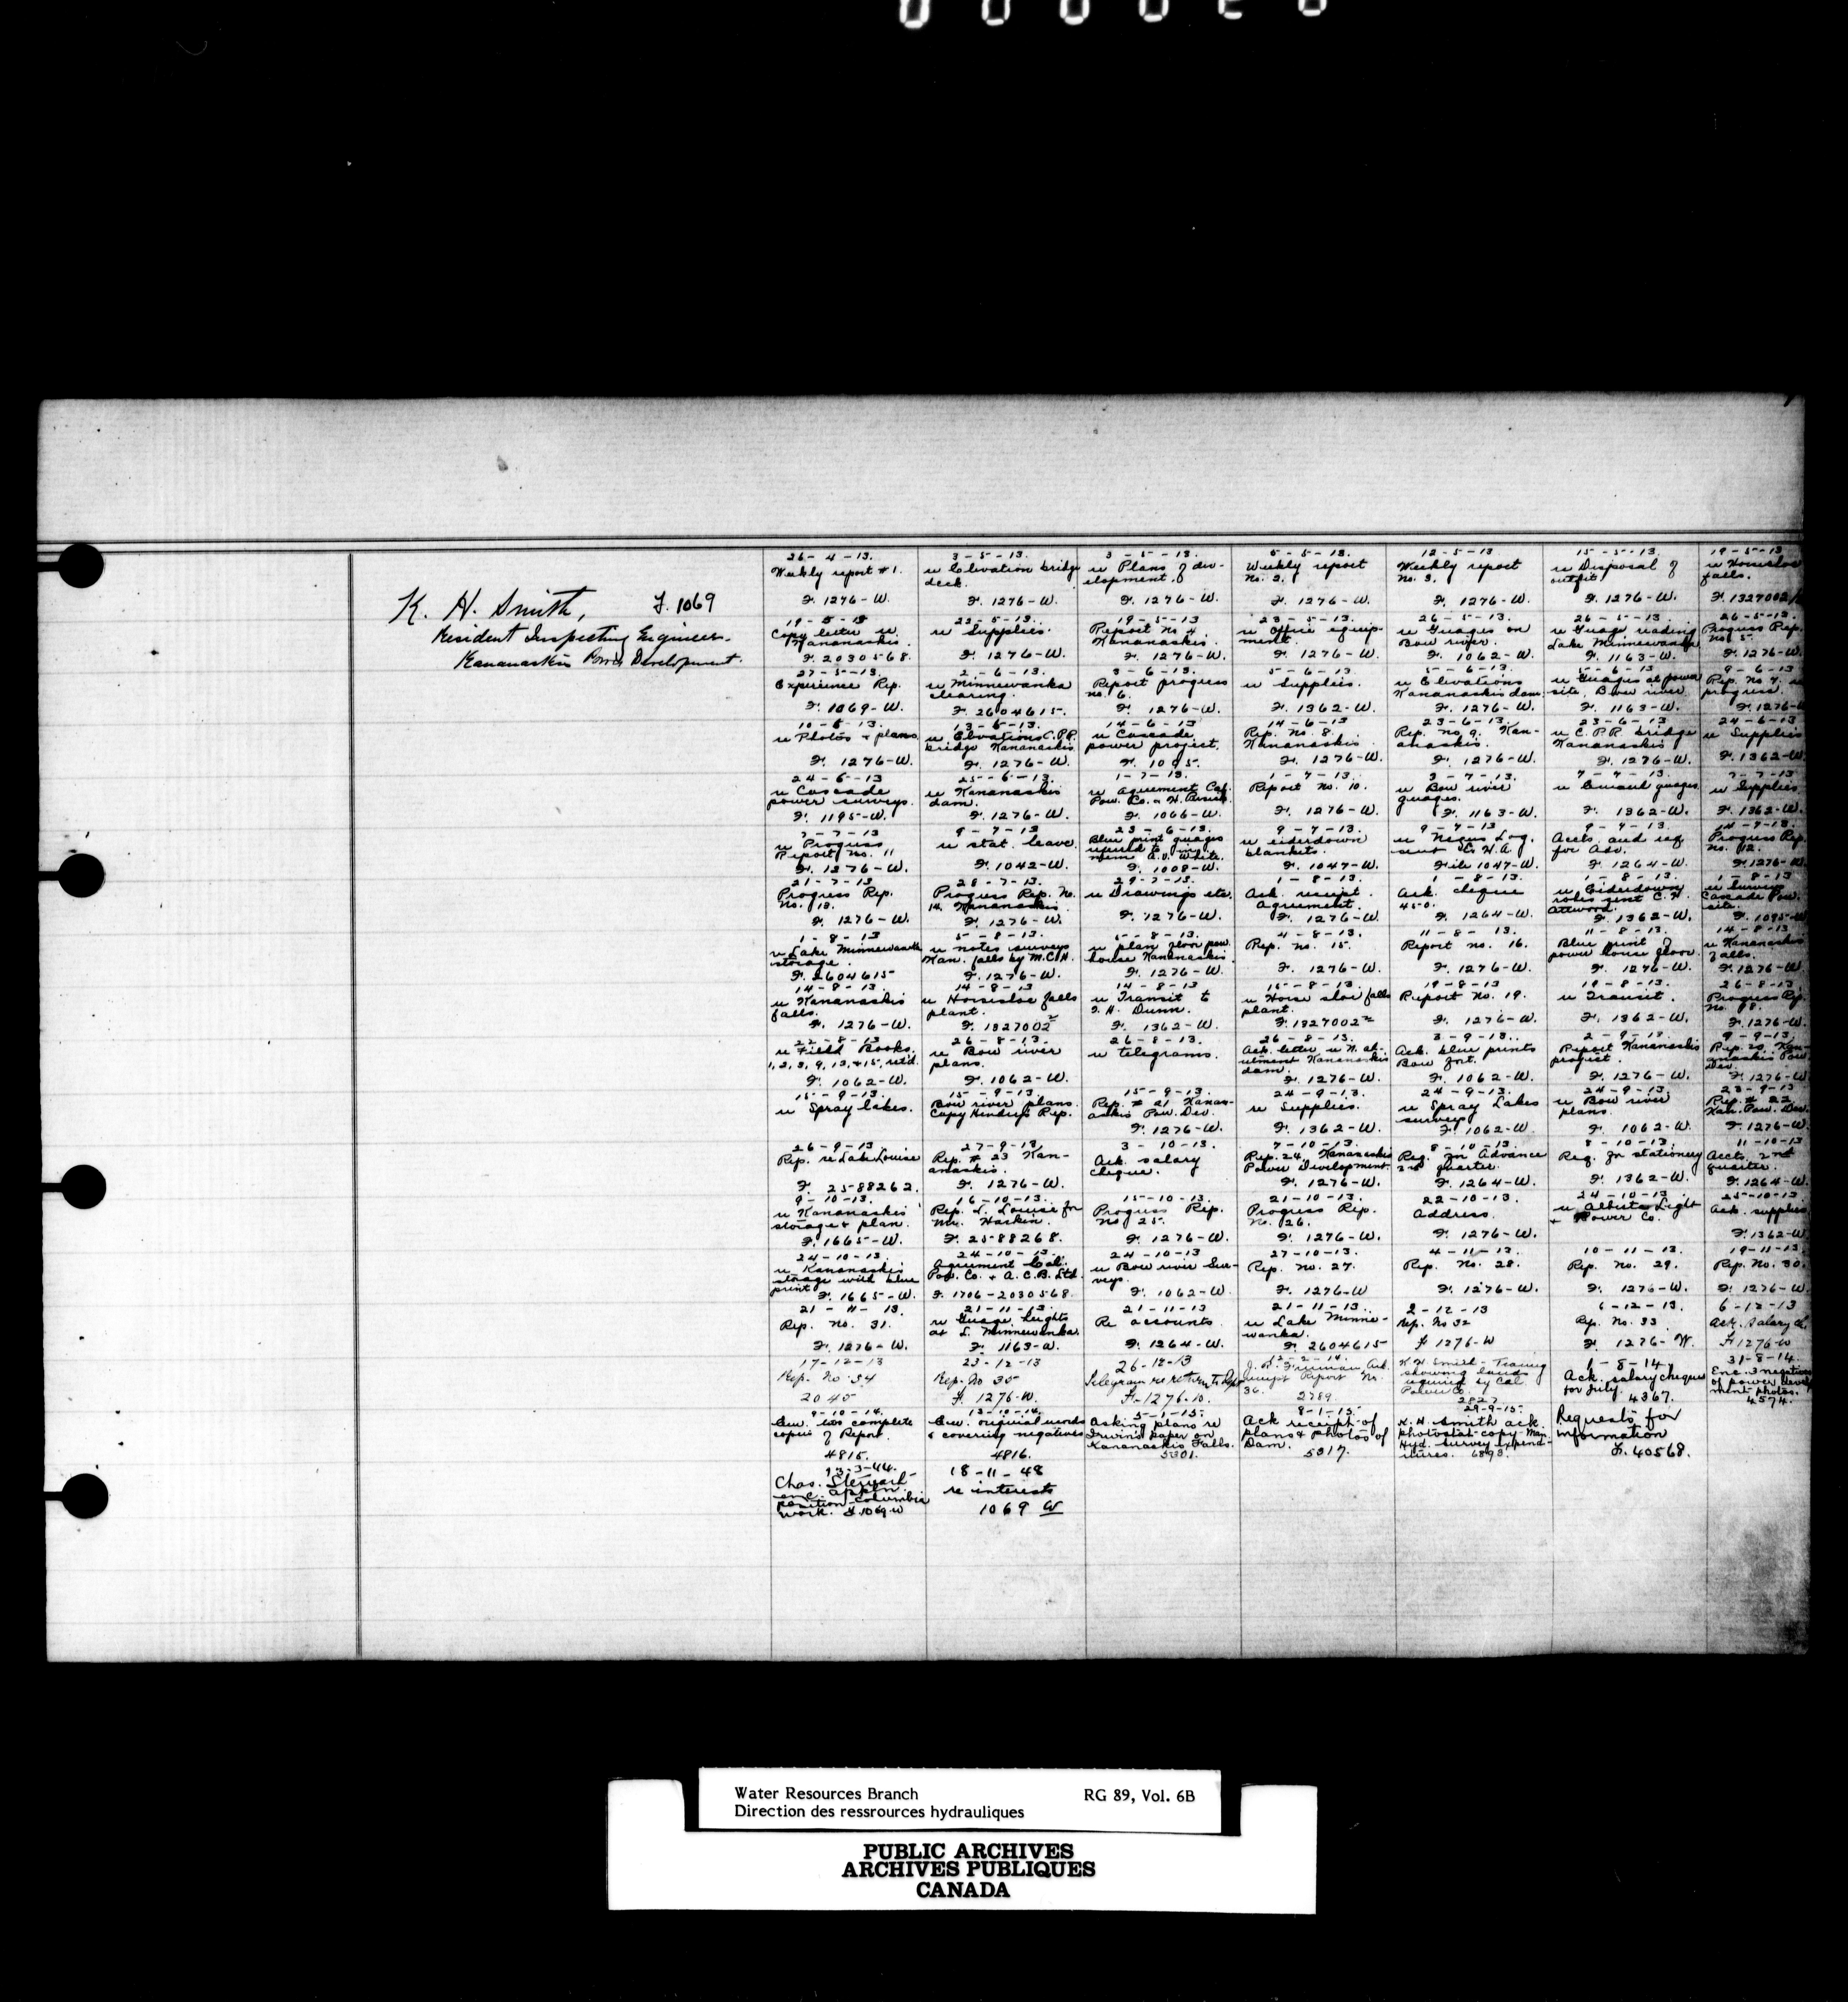 K. H. Smith, F. 1069
Resident Inspecting Engineer.
Kananaskis Power Development.
26-4-13.
Weekly report #1.
F. 1276-W.
3-5-13.
re Elevation bridge
deck.
F. 1276-W.
3-5-13.
re Plans of dev-
elopment.
F. 1276-W.
5-5-13.
Weekly report
No. 2.
F. 1276-W.
12-5-13
Weekly report
No. 3.
F. 1276-W.
15-5-13
re Disposal of
outfit.
F. 1276-W.
19-5-13
re Horseshoe
falls.
F. 1327002
19-5-13
Copy letter re
Kananaskis.
F. 2030568.
23-5-13.
re Supplies.
F. 1276-W.
19-5-13
Report No 4
Kananaskis.
F. 1276-W.
23-5-13.
re Office equip-
ment.
F. 1276-W.
26-5-13.
re Guages on
Bow river.
F. 1062-W.
26-5-13.
re Guage reading
Lake Minnewanka
F. 1163-W.
26-5-13.
Progress Rep.
No 5.
F. 1276-W.
27-5-13.
Experience Rep.
F. 1069-W.
2-6-13.
re Minnewanka
clearing.
F. 2604615.
3-6-13.
Report progress
no. 6.
F. 1276-W.
5-6-13
re Supplies.
F. 1362-W.
5-6-13.
re Elevations
Kananaskis dam.
F. 1276-W.
5-6-13
re Guages at power
site, Bow river.
F. 1163-W.
9-6-13
Rep. No 7. re
progress.
F. 1276-W
10-6-13.
re Photos & plans.
F. 1276-W.
13-6-13.
re Elevations C.P.R.
bridge Kananaskis.
F. 1276-W.
14-6-13
re Cascade
power project.
F. 1095.
14-6-13
Rep. No 8.
Kananaskis.
F. 1276-W.
23-6-13.
Rep. no 9. Kan-
anaskis.
F. 1276-W.
23-6-13.
re C.P.R. bridge
Kananaskis
F. 1276-W.
24-6-13
re Supplies
F. 1362-W.
24-6-13
re Cascade
power surveys.
F. 1195-W.
25-6-13.
re Kananaskis
dam.
F. 1276-W.
1-7-13.
re Agreement Cal.
Pow. Co.
F. 1066-W.
1-7-13.
Report No. 10.
F. 1276-W.
3-7-13.
re Bow river
guages.
F. 1163-W.
7-7-13.
guages.
F. 1362-W.
7-7-13
re Supplies
F. 1362-W.
7-7-13
re Progress
Report No. 11
F. 1276-W.
9-7-13
re stat. leave.
F. 1042-W.
23-6-13.
Blue print guages
referred to in
mem A.V. White.
F. 1008-W.
9-7-13.
re eiderdown
blankets.
F. 1047-W.
9-7-13
File 1047-W.
9-7-13.
Accts. and req
for Adv.
F. 1264-W.
14-7-13.
Progress Rep.
No. 12.
F. 1276-W.
21-7-13
Progress Rep.
No. 13.
F. 1276-W.
28-7-13.
Progress Rep. No.
14. Kananaskis.
F. 1276-W.
29-7-13.
re Drawings etc.
F. 1276-W.
1-8-13.
Ack. receipt.
Agreement.
F. 1276-W.
1-8-13.
Ack. cheque
450.
F. 1264-W.
1-8-13.
re Eiderdown
robes sent C. H.
Attwood.
F. 1362-W.
1-8-13
re Surveys
Cascade Pow.
site.
F. 1095-W
1-8-13
re Lake Minnewanka
storage.
F. 2604615
5-8-13.
re notes surveys
Kan. falls by M.C.H.
F. 1276-W.
5-8-13.
re plan floor pow.
house Kananaskis.
F. 1276-W.
4-8-13.
Rep. No. 15.
F. 1276-W.
11-8-13.
Report no. 16.
F. 1276-W.
11-8-13.
Blue print of
power house floor.
F. 1276-W.
14-8-13
re Kananaskis
falls.
F. 1276-W.
14-8-13.
re Kananaskis
falls.
F. 1276-W.
14-8-13
re Horseshoe falls
plant.
F. 1327002
14-8-13
re Transit to
Dunn.
F. 1362-W.
15-8-13.
re Horse shoe falls
plant.
F. 1327002
19-8-13
Report No. 19.
F. 1276-W.
19-8-13.
re Transit.
F. 1362-W.
26-8-13.
Progress Rep.
F. 1276-W.
22-8-13
re Field Books.
1, 2, 3, 9, 13, & 15, ret'd.
F. 1062-W.
26-8-13.
re Bow river
plans.
F. 1062-W.
26-8-13.
re telegrams.
F. 1276-W.
3-9-13..
Ack. blue prints
Bow fort.
F. 1062-W.
2-9-13
Report Kananaskis
project.
F. 1276-W.
9-9-13.
Rep. 20 Kan-
anaskis Pow.
Dev.
F. 1276-W
15-9-13.
re Spray lakes.
15-9-13.
Bow river plans.
Copy Hendry's Rep.
15-9-13.
Rep. # 21 Kanan-
askis Pow. Dev.
F. 1276-W.
24-9-13.
re Supplies.
F. 1362-W.
24-9-13.
re Spray Lakes
survey
F. 1062-W.
24-9-13.
re Bow river
plans.
F. 1062-W.
23-9-13
Rep. # 22
Kan. Pow. Dev.
F. 1276-W.
26-9-13.
Rep. re Lake Louise
F. 2588262.
27-9-13.
Rep. # 23 Kan-
anaskis.
F. 1276-W.
3-10-13.
Ack. salary
cheque.
7-10-13.
Rep. 24, Kananaskis
Power Development.
F. 1276-W.
8-10-13.
Req. for Advance
quarter.
F. 1264-W.
8-10-13.
Req. for stationery
F. 1362-W.
11-10-13
Accts. 2nd
quarter.
F. 1264-W.
9-10-13.
re Kananaskis
storage & plan.
F. 1665-W.
16-10-13.
Rep. L. Louise for
Mr. Harkin.
F. 2588268.
15-10-13.
Progress Rep.
No 25.
F. 1276-W.
21-10-13.
Progress Rep.
No. 26.
F. 1276-W.
22-10-13.
Address.
F. 1276-W.
24-10-13.
re Alberta Light
& Power Co.
25-10-13.
Ack. supplies
F. 1362-W
24-10-13.
re Kananaskis
storage with blue
print F. 1665-W.
24-10-13.
Agreement Cal.
Pow. Co. & A.C.B. Ltd.
F. 1706-2030568.
24-10-13
re Bow river Sur-
veys.
F. 1062-W.
27-10-13.
Rep. No. 27.
F. 1276-W
4-11-13.
Rep. No. 28.
F. 1276-W.
10-11-13.
Rep. No. 29.
F. 1276-W.
19-11-13.
Rep. No. 30.
F. 1276-W.
21-11-13.
Rep. No. 31.
F. 1276-W.
21-11-13.
re Guage heights
at L. Minnewanka.
F. 1163-W.
21-11-13
Re accounts.
F. 1264-W.
21-11-13.
re Lake Minne-
wanka.
F. 2604615
2-12-13
Rep. No 32
F 1276-W
6-12-13.
Rep. No. 33
F. 1276-W.
6-12-13
Ack. Salary
F 1276-W
17-12-13
Rep. No 34
2045
23-12-13
Rep. No 35
F. 1276-W.
26-12-13
Telegram re return to
F.-1276-W.
Freeman Ack.
receipt Report No.
36.
2789.
K H Smith - Tracing
showing lands
required by Cal
Power Co.
2827
1-8-14
Ack. salary cheques
for July. 4367.
31-8-14.
Enc. 3 negatives
of power devel
ment photos.
4574.
9-10-14.
Enc. two complete
copies of Report.
4815.
12-10-14.
Enc. original
& covering negatives
4816.
5-1-15.
Asking plans re
Irwin's paper on
Kananaskis Falls.
5301.
8-1-15.
Ack receipt of
plans & photos of
Dam. 5317.
29-9-15.
K. H. Smith ack.
photostat copy Man.
Hyd. survey expend-
itures. 6893.
Requests for
information
F. 40568.
13-3-44.
Chas. Stewart-
enc. appln.
position Columbia
work. F 1069 W
18-11-48
re interests
1069 W
Water Resources Branch RG 89, Vol. 6B
Direction des ressrources hydrauliques
PUBLIC ARCHIVES
ARCHIVES PUBLIQUES
CANADA